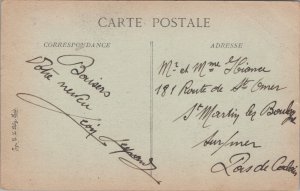 CARTE POSTALE
CORRESPONDANCE
ADRESSE
Baisers
Votre neveu
Léon
Mr et Mme
181 Route de St Omer
St Martin les Boulogne
sur mer
Pas de Calais